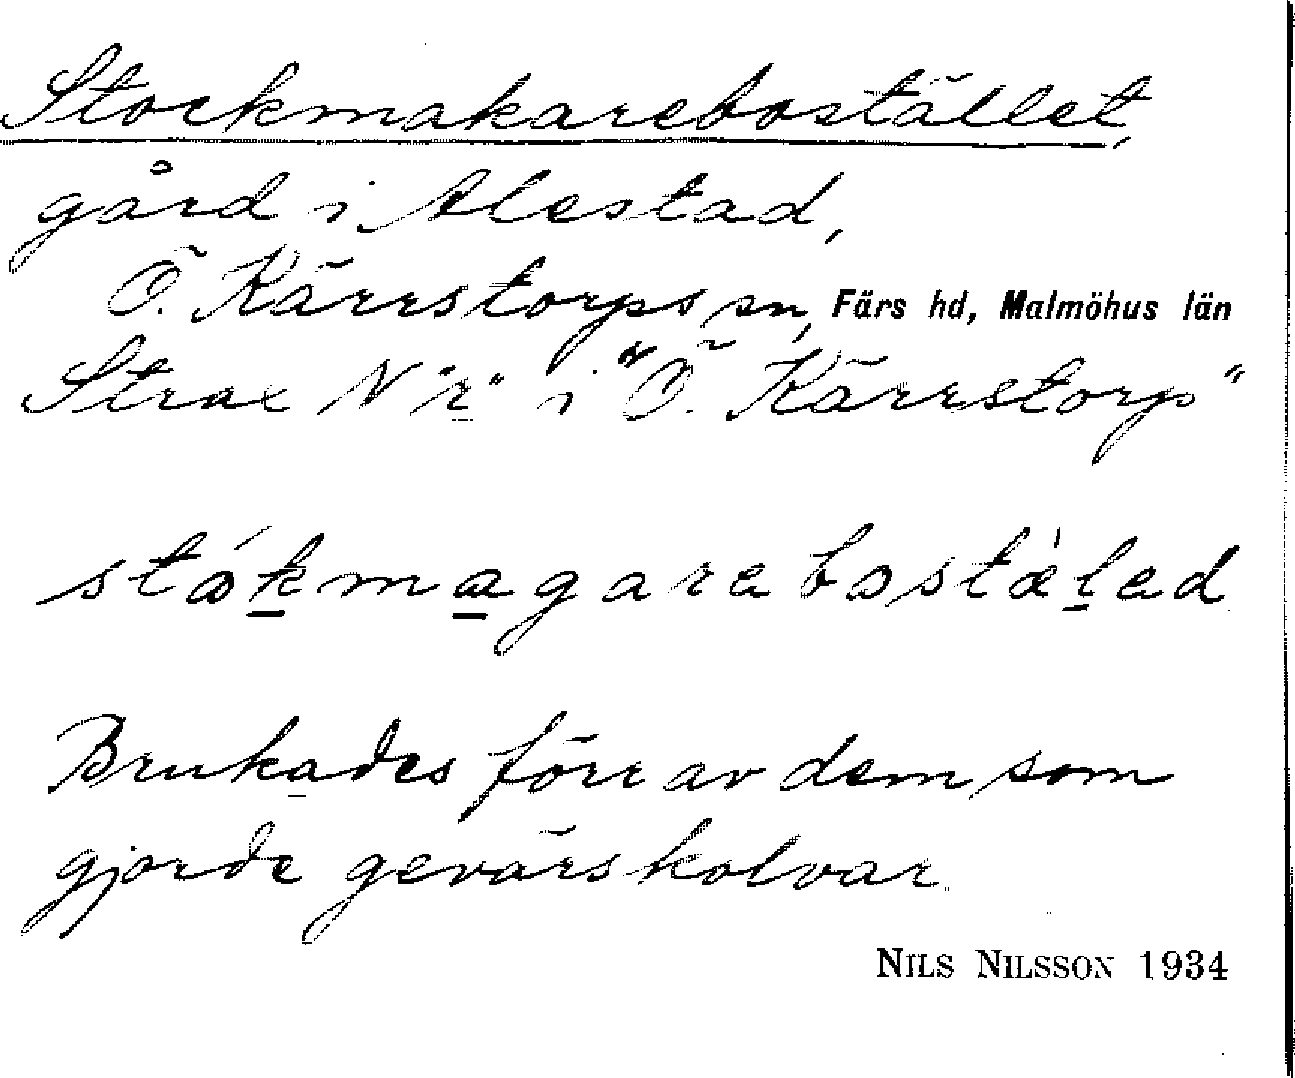 Stockmakarebostället,
gård i Alestad,
Ö. Kärrstorps sn, Färs hd, Malmöhus län
Strax N "r" i "Ö. Kärrstorp"
stókmagarebostä́led
Brukades förr av dem som
gjorde gevärskolvar.
NILS NILSSON 1934